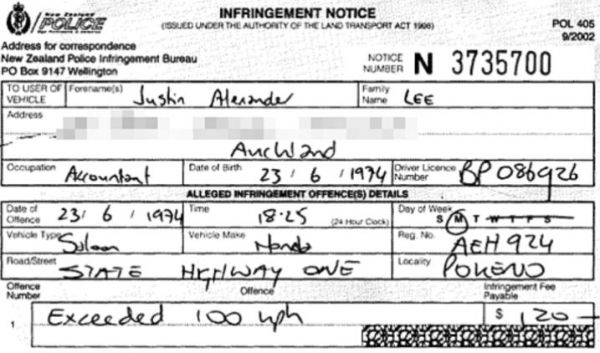 New Zealand
POLICE
INFRINGEMENT NOTICE
(ISSUED UNDER THE AUTHORITY OF THE LAND TRANSPORT ACT 1998)
POL 405
9/2002
Address for correspondence
New Zealand Police Infringement Bureau
PO Box 9147 Wellington
NOTICE NUMBER N 3735700
TO USER OF VEHICLE Forename(s) Justin Alexander Family Name LEE
Address
Auckland
Occupation Accountant Date of Birth 23 / 6 / 1974 Driver Licence Number BP086926
ALLEGED INFRINGEMENT OFFENCE(S) DETAILS
Date of Offence 23/ 6 / 1974 Time 18:25 (24 Hour Clock) Day of Week S M T W T F S
Vehicle Type Saloon Vehicle Make Honda Reg. No. AEH924
Road/Street STATE HIGHWAY ONE Locality POKENO
Offence Number Offence Infringement Fee Payable
1 Exceeded 100 kph $ 120 —